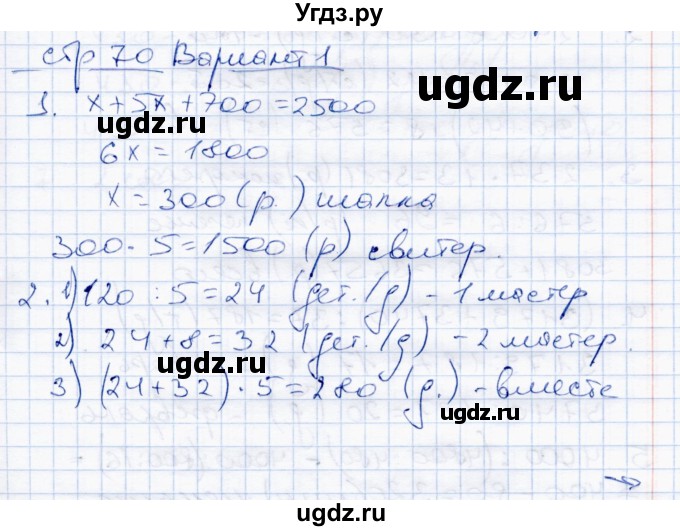 Угдз.ру
стр 70 Вариант 1
ugdz.ru
1. x + 5x + 700 = 2500
ugdz.ru
6x = 1800
x = 300 (р.) шапка
ugdz.ru
300 · 5 = 1500 (р) свитер.
2. 1) 120 : 5 = 24 (дет./д) - 1 мастер
ugdz.ru
2) 24 + 8 = 32 (дет./д) - 2 мастер.
ugdz.ru
3) (24 + 32) · 5 = 280 (д.) - вместе
ugdz.ru